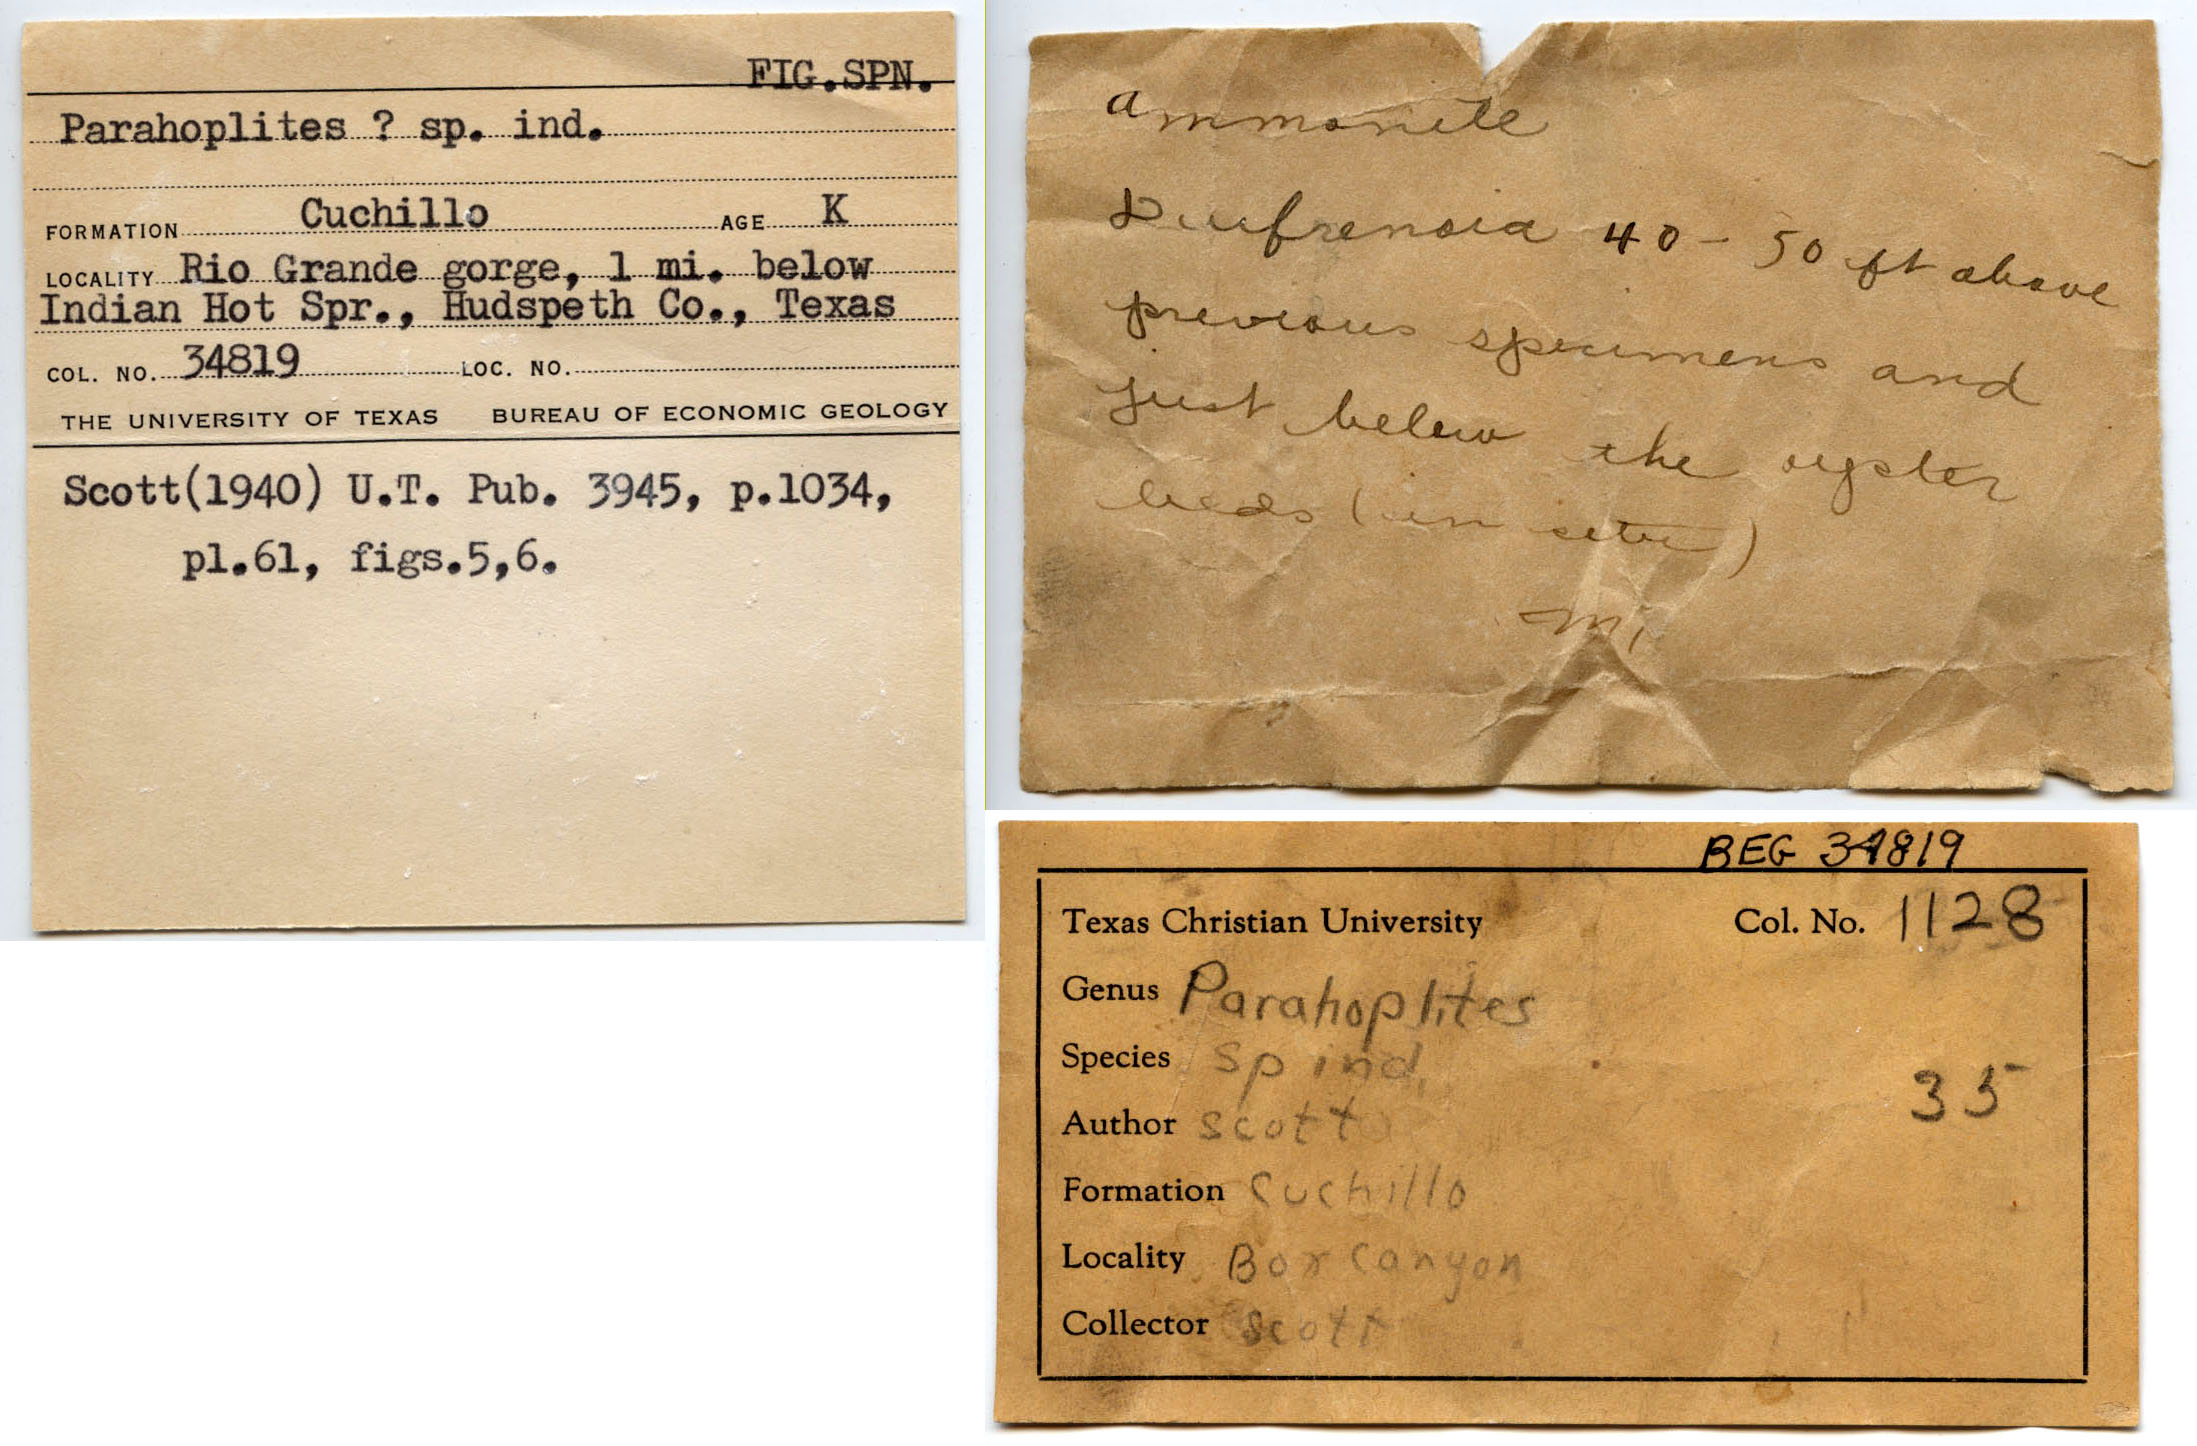 FIG.SPN.
Parahoplites ? sp. ind.
FORMATION Cuchillo AGE K
LOCALITY Rio Grande gorge, 1 mi. below
Indian Hot Spr., Hudspeth Co., Texas
COL. NO. 34819 LOC. NO.
THE UNIVERSITY OF TEXAS BUREAU OF ECONOMIC GEOLOGY
Scott(1940) U.T. Pub. 3945, p.1034,
pl.61, figs.5,6.
ammonite
Dufrenoia 40-50 ft above
previous specimens and
just below the oyster
beds (in situ)
BEG 34819
Texas Christian University Col. No. 1128
Genus Parahoplites
Species sp ind.
35
Author Scott
Formation Cuchillo
Locality Box Canyon
Collector Scott